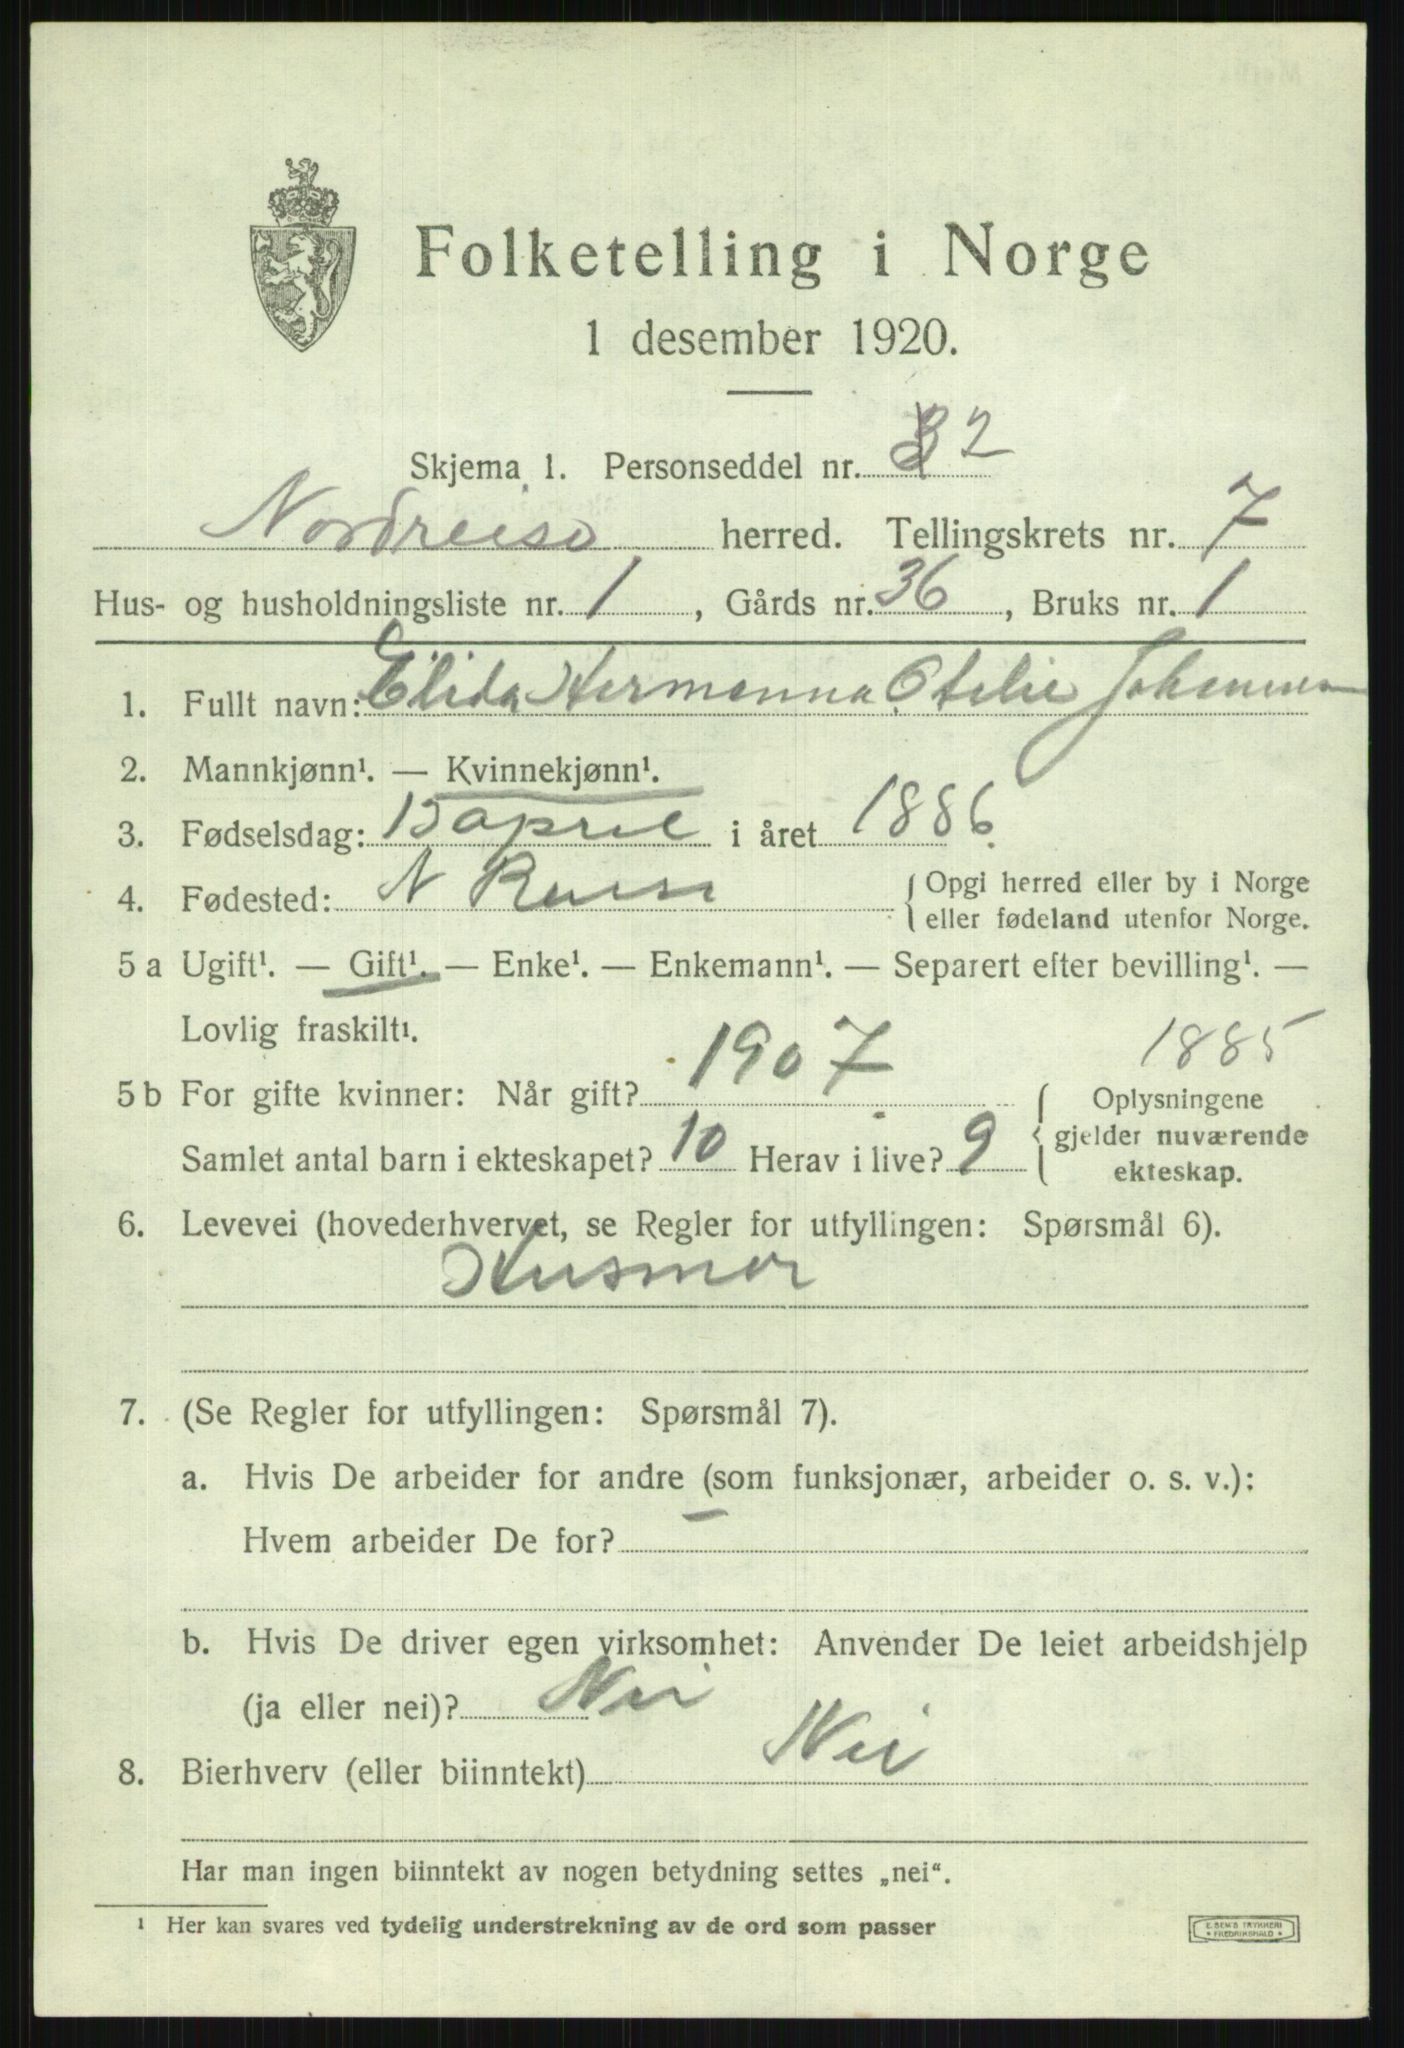 Folketelling i Norge
1 desember 1920.
Skjema 1. Personseddel nr. 2
Nordreisa herred. Tellingskrets nr. 7
Hus- og husholdningsliste nr. 1, Gårds nr. 36, Bruks nr. 1
1. Fullt navn: Elida Hermanna Otelie Johannesen
2. Mannkjønn¹. — Kvinnekjønn¹.
3. Fødselsdag: 15 april i året 1886
4. Fødested: N Reisa { Opgi herred eller by i Norge
eller fødeland utenfor Norge.
5 a Ugift¹. — Gift¹. — Enke¹. — Enkemann¹. — Separert efter bevilling¹. —
Lovlig fraskilt¹.
1885
5 b For gifte kvinner: Når gift? 1907 { Oplysningene
gjelder nuværende
ekteskap.
Samlet antal barn i ekteskapet? 10 Herav i live? 9
6. Levevei (hovederhvervet, se Regler for utfyllingen: Spørsmål 6).
Husmor
7. (Se Regler for utfyllingen: Spørsmål 7).
a. Hvis De arbeider for andre (som funksjonær, arbeider o. s. v.):
Hvem arbeider De for? –
b. Hvis De driver egen virksomhet: Anvender De leiet arbeidshjelp
(ja eller nei)? Nei
8. Bierhverv (eller biinntekt) Nei
Har man ingen biinntekt av nogen betydning settes „nei“.
¹ Her kan svares ved tydelig understrekning av de ord som passer
E. SEM'S TRYKKERI
* FREDRIKSHALD *